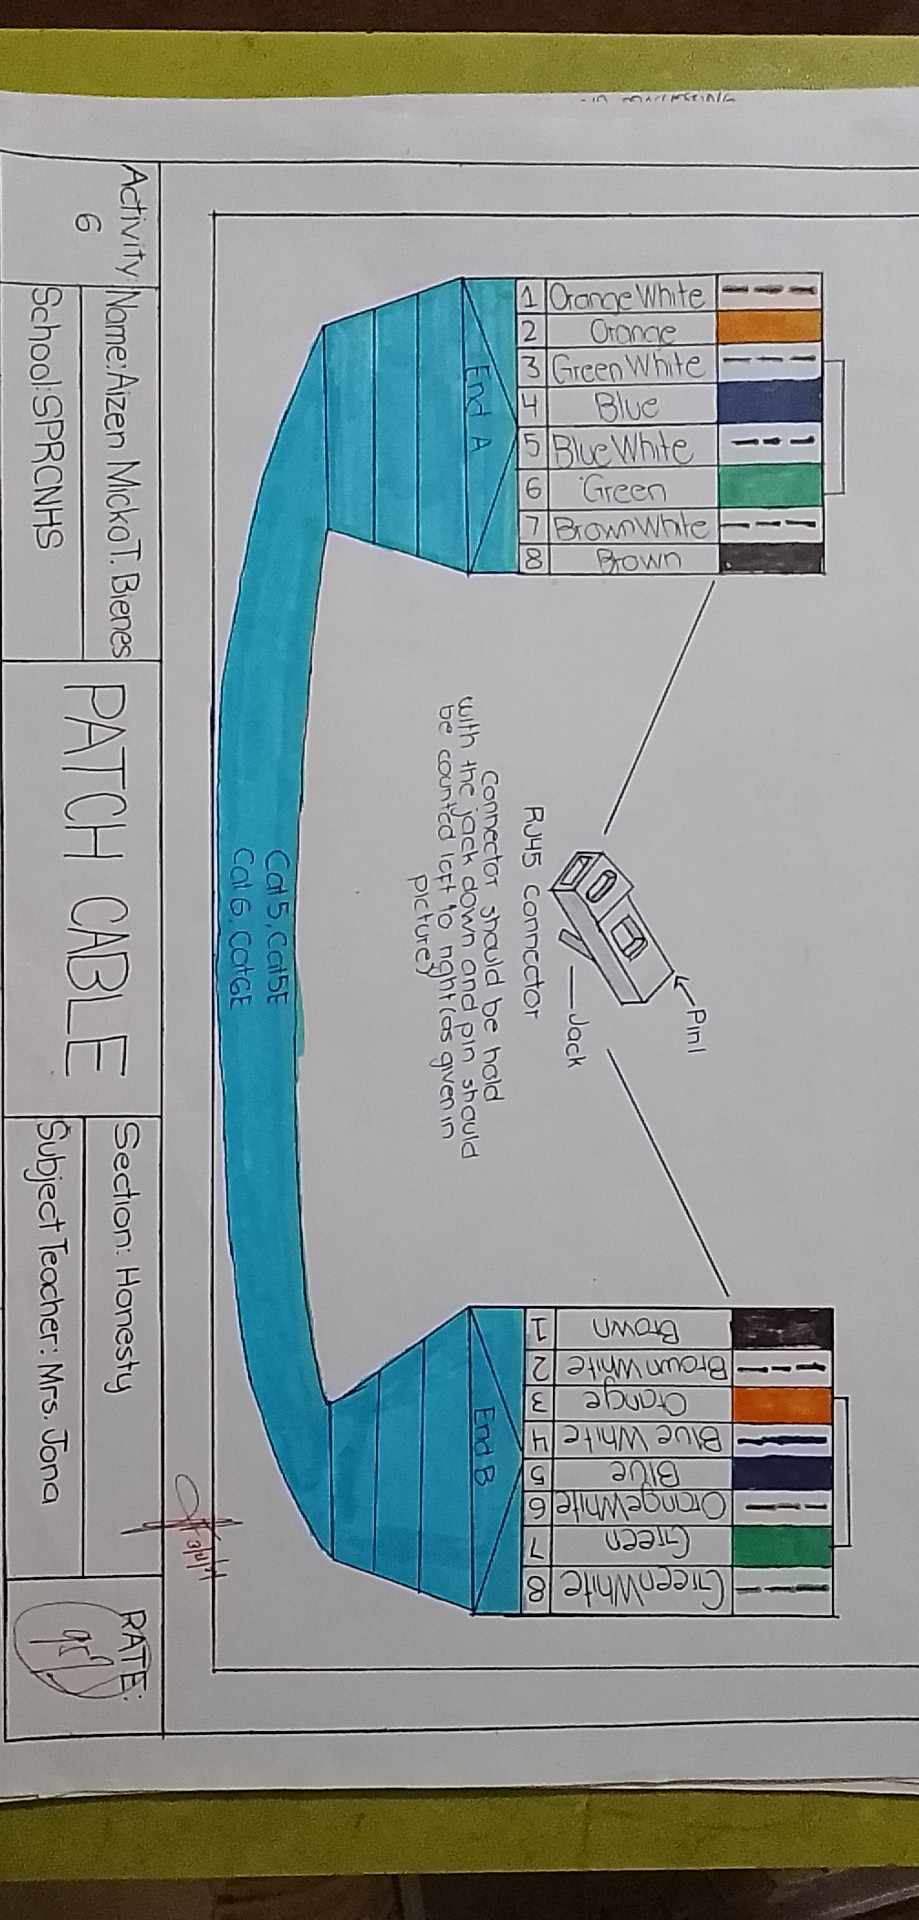 1 Orange White
2 Orange
3 Green White
4 Blue
5 Blue White
6 Green
7 Brown White
8 Brown
End A
Pin1
Jack
RJ45 Connector
Connector should be hold
with the jack down and pin should
be counted left to right (as given in
picture)
1 Brown
2 Brown White
3 Orange
4 Blue White
5 Blue
6 Orange White
7 Green
8 Green White
End B
Cat5, Cat5E
Cat6, Cat6E
Activity:
6
Name: Aizen Micko T. Bienes
School: SPRCNHS
PATCH CABLE
Section: Honesty
Subject Teacher: Mrs. Jona
RATE: